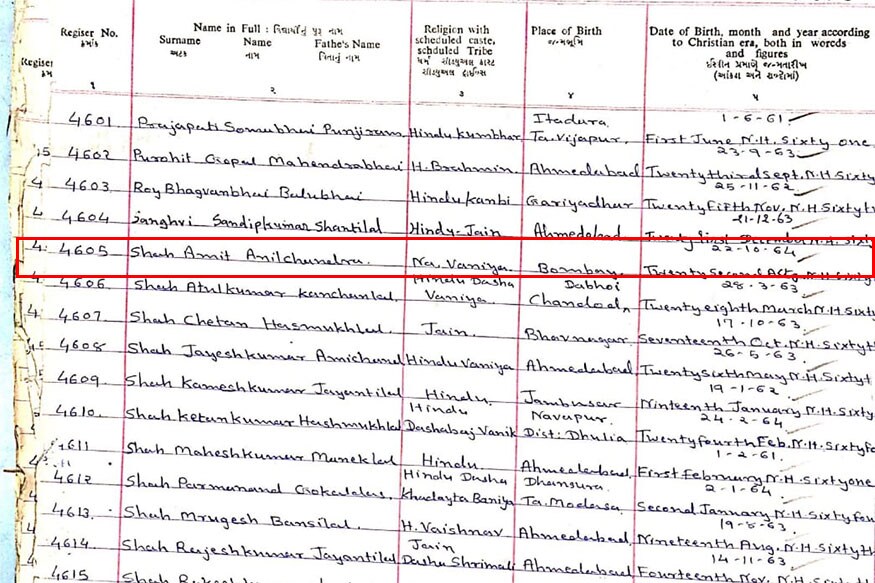 Regiser No. Name in Full : વિદ્યાર્થીનું પૂરૂ નામ Religion with Place of Birth Date of Birth, month and year according
ક્રમાંક Surname Name Fathe's Name scheduled caste, જન્મભૂમિ to Christian era, both in worcds
અટક નામ પિતાનું નામ schduled Tribe and figures
Regiser
૧ ૨ ૩ ૪ ૫
Itadura. 1-6-61
4601 Prajapati Somubhai Punjiram Hindu kumbhar Ta. Vijapur, First June N.H. Sixty one
23-9-63
4602 Purohit Gopal Mahendrabhai H. Brahmin, Ahmedabad Twenty third Sept. N.H. Sixty
25-11-62
4603 Roy Bhagvanbhai Balubhai Hindu kanbi Gariyadhar Twenty Fifth Nov. N.H. Sixty t
21-12-63
4604 Janghri Sandipkumar Shantilal Hindu-Jain Ahmedabad Twenty first December N.H. Sixty
22-10-64
4605 Shah Amit Anilchandra. Na. Vaniya. Bombay. Twenty Second
Hindu Dasha Dabhoi 28-3-63
4606 Shah Atulkumar kanchanlal. Vaniya. Chandod, Twenty eighth March N.H. Sixty
17-10-63
4607 Shah Chetan Hasmukhlal. Jain. Bhavnagar, Seventeenth Oct. N.H. Sixty t
26-5-63
4608 Shah Jayeshkumar Amichand Hindu Vaniya Ahmedabad, Twenty sixth May N.H. Sixty t
19-1-62
4609 Shah Kameshkumar Jayantilal Hindu. Jambusar Ninteenth January N.H. Sixty
Hindu Navapur. 24-2-64
4610 Shah ketankumar Hashmukhlal Dashabaj Vanik Dist: Dhulia Twenty fourth Feb. N.H. Sixty fo
1-2-61
4611 Shah Maheshkumar Maneklal Hindu. Ahmedabad, First February N.H. Sixty one
Hindu Dasha Dhansura. 2-1-64
4612 Shah Parmanand Gokaldas, Khadayta Baniya Ta. Modasa, Second January N.H. Sixty four
19-8-63
4613. Shah Mrugesh Bansilal. H. Vaishnav Ahmedabad, Nineteenth Aug. N.H. Sixty
Jain 14-11-63
4614 Shah Rajeshkumar Jayantilal Dasha Shrimali Ahmedabad Fourteenth Nov. N.H. Sixty
4615 Shah